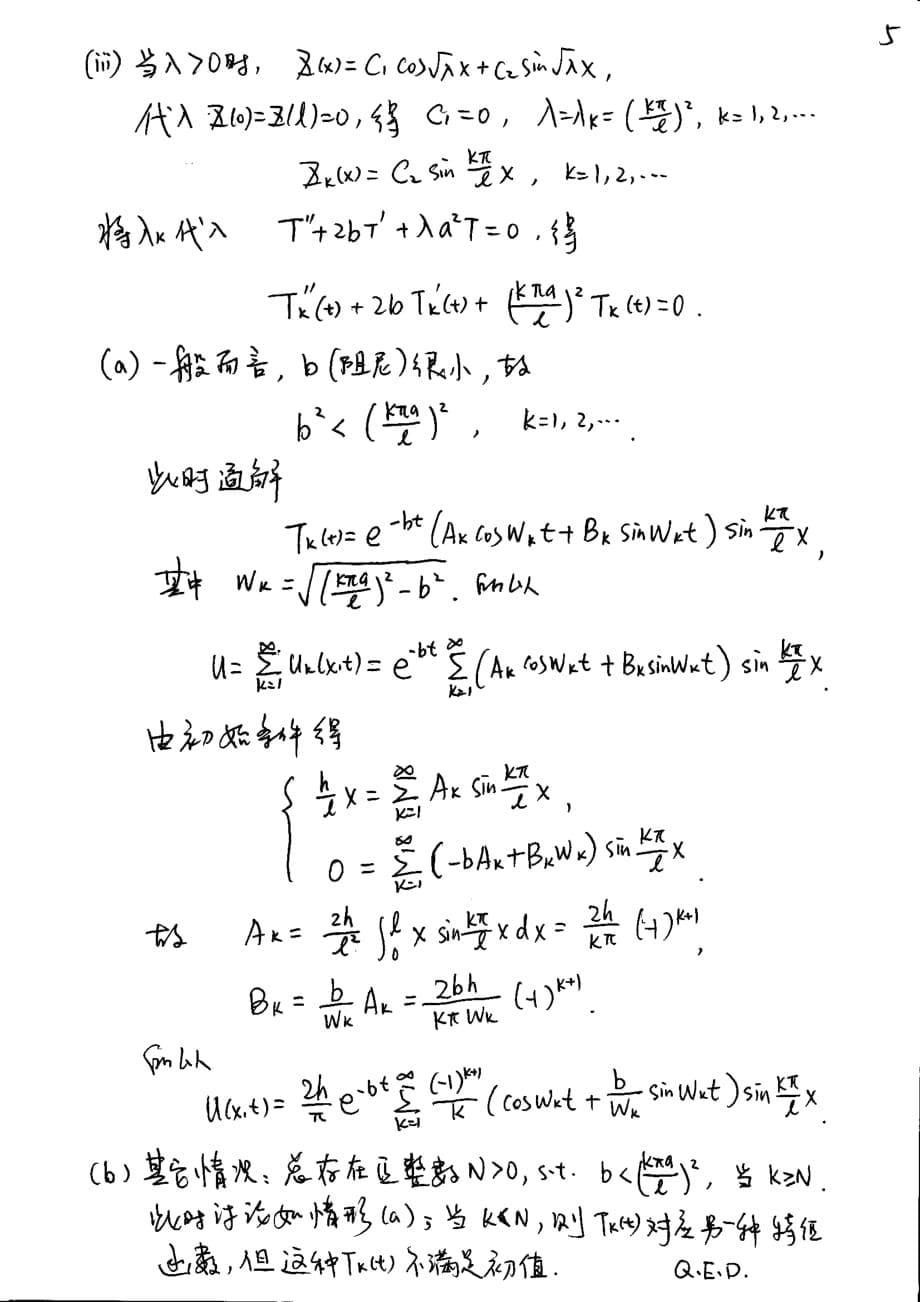 5
(iii) 当λ>0时, X(x)=C₁cos√λx+C₂sin√λx,
代入 X(0)=X(l)=0, 得 C₁=0, λ=λₖ=(kπ/l)², k=1,2,…
Xₖ(x)=C₂ sin kπ/l x, k=1,2,…
将λₖ代入 T″+2bT′+λa²T=0, 得
Tₖ″(t)+2bTₖ′(t)+(kπa/l)²Tₖ(t)=0.
(a) 一般而言, b(阻尼)很小, 故
b²<(kπa/l)², k=1,2,….
此时通解
Tₖ(t)=e^{-bt}(Aₖcoswₖt+Bₖsinwₖt)sin kπ/l x,
其中 wₖ=√((kπa/l)²-b²). 所以
u=∑_{k=1}^{∞}uₖ(x,t)=e^{-bt}∑_{k=1}^{∞}(Aₖcoswₖt+Bₖsinwₖt)sin kπ/l x.
由初始条件得
{ h/l x=∑_{k=1}^{∞}Aₖ sin kπ/l x,
0=∑_{k=1}^{∞}(-bAₖ+Bₖwₖ)sin kπ/l x.
故 Aₖ=2h/l² ∫₀^l x sin kπ/l x dx=2h/kπ (-1)^{k+1},
Bₖ=b/wₖ Aₖ=2bh/kπwₖ (-1)^{k+1}.
所以
u(x,t)=2h/π e^{-bt}∑_{k=1}^{∞}(-1)^{k+1}/k (coswₖt+b/wₖ sinwₖt)sin kπ/l x.
(b) 其它情况: 总存在正整数N>0, s.t. b<(kπa/l)², 当k≥N.
此时讨论如情形(a); 当k<N, 则Tₖ(t)对应另一种特征
函数, 但这种Tₖ(t)不满足初值. Q.E.D.